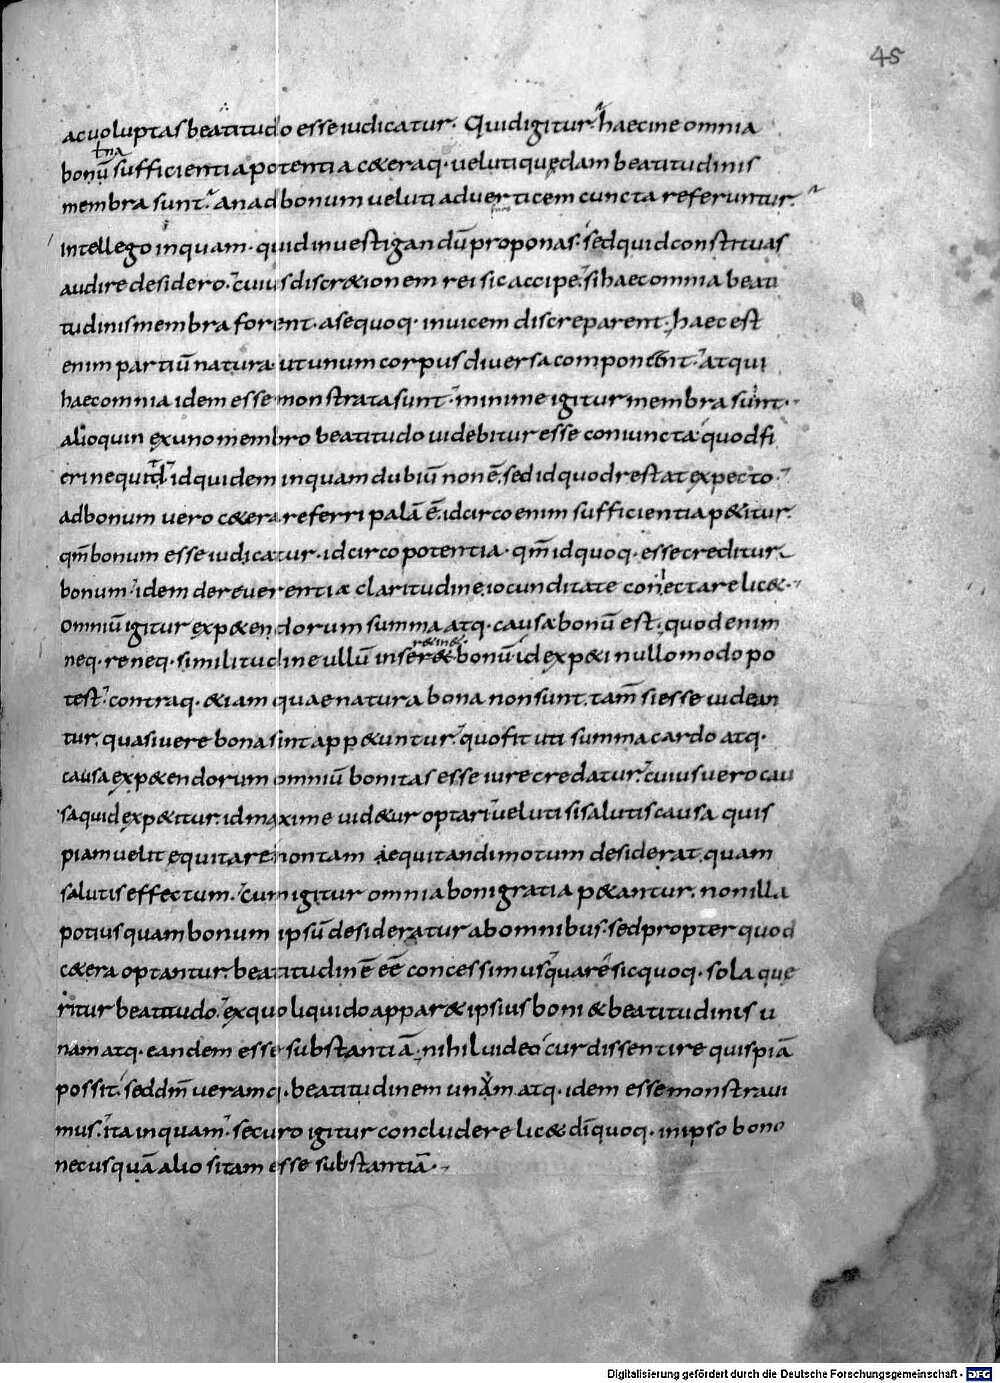 45
ac uoluptas beatitudo esse iudicatur. Quid igitur haecine omnia
bonū sufficientia potentia c&eraq· ueluti quędam beatitudinis
membra sunt. an ad bonum ueluti ad uerticem cuncta referuntur.
intellego inquam. quid inuestigandū proponas. sed quid constituas
audire desidero. cuius discr&ionem rei sic accipe. si haec omnia beati
tudinis membra forent. a se quoq· inuicem discreparent. haec est
enim partiū natura ut unum corpus diuersa component. atqui
haec omnia idem esse monstrata sunt. minime igitur membra sunt.
alioquin ex uno membro beatitudo uidebitur esse coniuncta. quod fi
eri nequid. id quidem inquam dubiū non ē. sed id quod restat expecto.
ad bonum uero c&era referri palā ē. idcirco enim sufficientia p&itur.
qm̄ bonum esse iudicatur. idcirco potentia. qm̄ id quoq· esse creditur
bonum. idem de reuerentia claritudine iocunditate coniectare lic&.
Omniū igitur exp&endorum summa atq· causa bonū est. quod enim
neq· re neq· similitudine ullū in se r&in& bonū. id exp&i nullo modo po
test. contraq· &iam quae natura bona non sunt. tam̄ si esse uidean
tur. quasi uere bona sint app&untur. quo fit uti summa cardo atq·
causa exp&endorum omniū bonitas esse iure credatur. cuius uero cau
sa quid exp&itur. id maxime uid&ur optari. ueluti si salutis causa quis
piam uelit equitare non tam aequitandi motum desiderat quam
salutis effectum. cum igitur omnia boni gratia p&antur. non illa
potius quam bonum ipsū desideratur ab omnibus. sed propter quod
c&era optantur. beatitudinē eē concessimus quare sic quoq· sola que
ritur beatitudo. ex quo liquido appar& ipsius boni & beatitudinis u
nam atq· eandem esse substantiā. nihil uideo cur dissentire quispiā
possit. sed dm̄ ueramq· beatitudinem unam atq· idem esse monstraui
mus. ita inquam. securo igitur concludere lic& dī quoq· in ipso bono
nec usquā alio sitam esse substantiā.
Digitalisierung gefördert durch die Deutsche Forschungsgemeinschaft - DFG